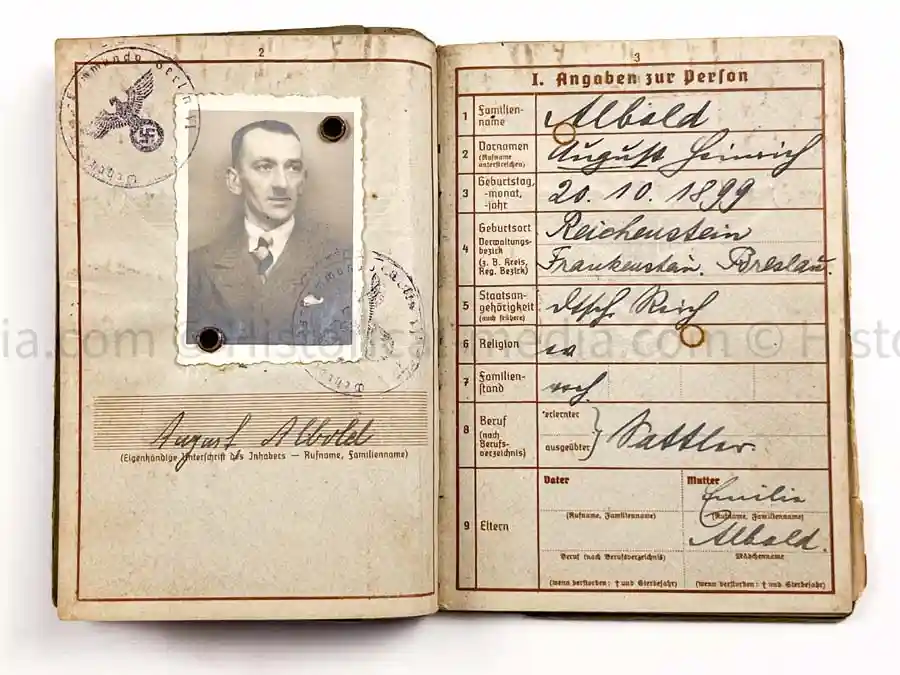 2
Albold August
(Eigenhändige Unterschrift des Inhabers — Rufname, Familienname)
3
I. Angaben zur Person
1 Familien-
name
Albold
2 Vornamen
(Rufname
unterstreichen)
August Heinrich
3 Geburtstag,
-monat,
-jahr
20. 10. 1899
4 Geburtsort
Verwaltungs-
bezirk
(z. B. Kreis,
Reg. Bezirk)
Reichenstein
Frankenstein. Breslau.
5 Staatsan-
gehörigkeit
(auch frühere)
Dtsch. Reich
6 Religion
ev
7 Familien-
stand
verh.
8 Beruf
(nach
Berufs-
verzeichnis)
erlernter
ausgeübter
Sattler.
9 Eltern
Vater
(Rufname, Familienname)
Beruf (nach Berufsverzeichnis)
(wenn verstorben: † und Sterbejahr)
Mutter
Emilie
(Rufname, Familienname)
Albold.
Mädchenname
(wenn verstorben: † und Sterbejahr)
ia.com © HistoricalMedia.com © Histor